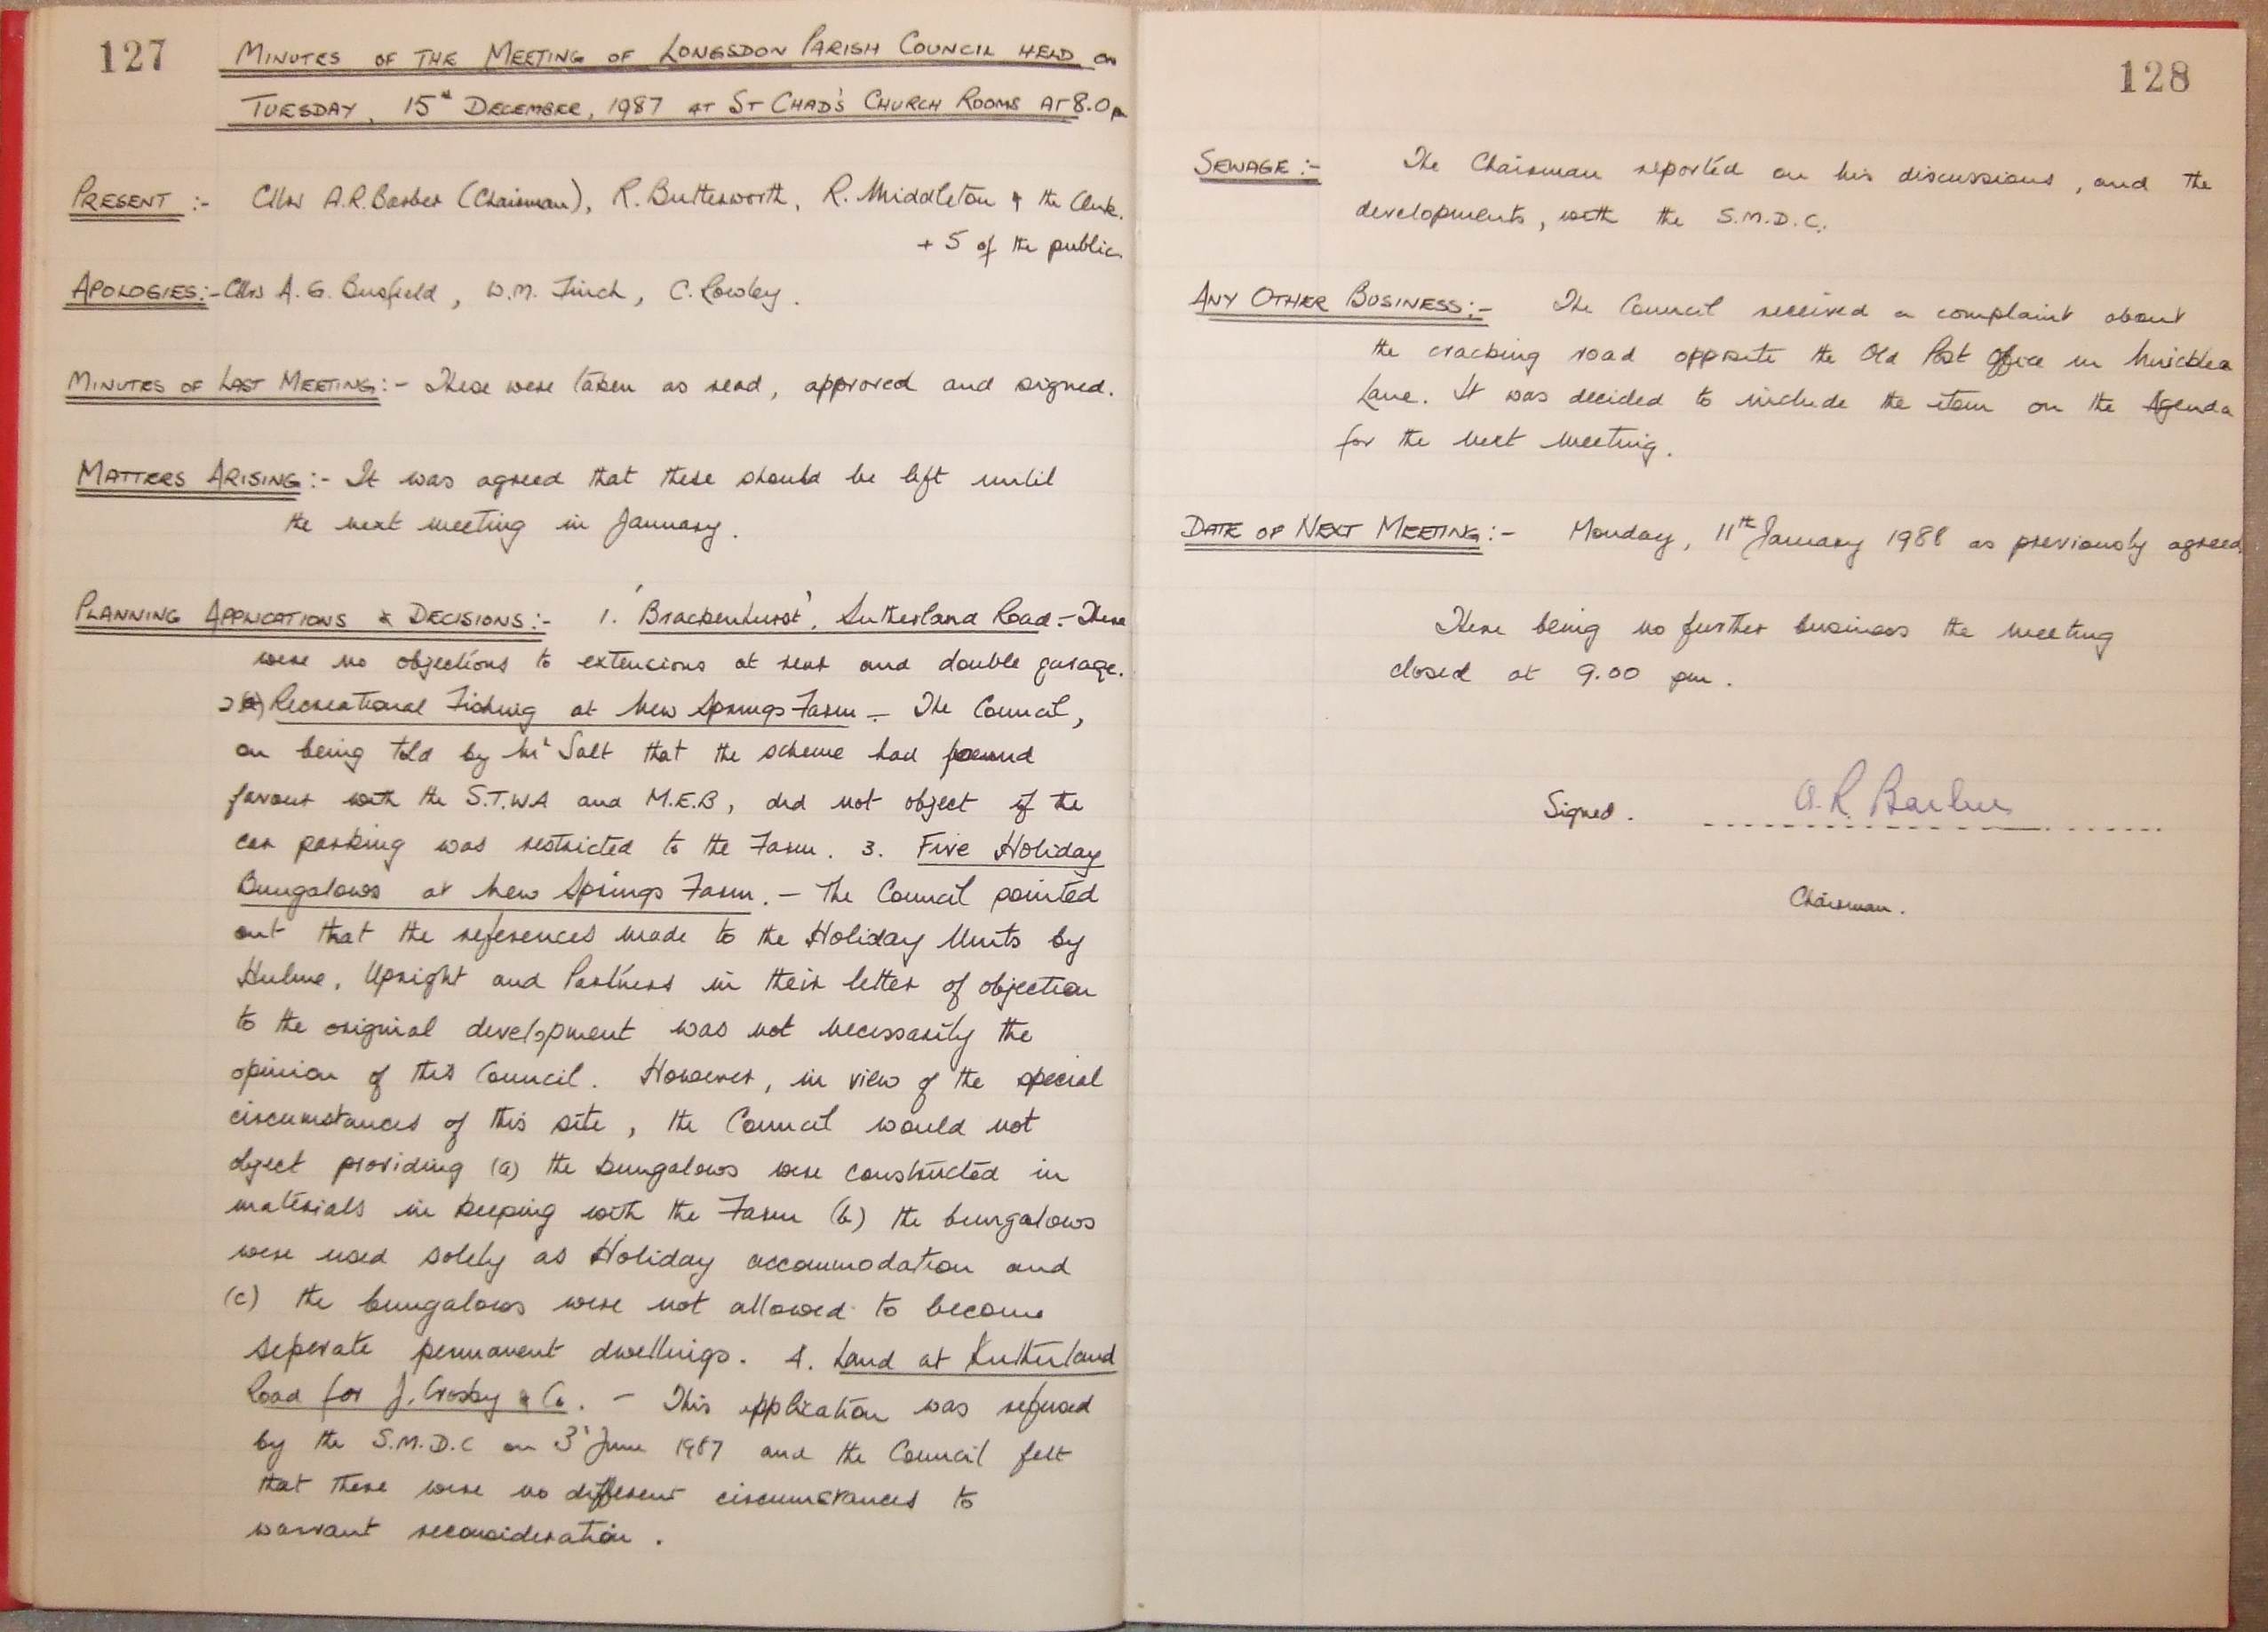 127
MINUTES OF THE MEETING OF LONGSDON PARISH COUNCIL HELD on
TUESDAY, 15th DECEMBER, 1987 AT ST CHAD'S CHURCH ROOMS AT 8.0pm
PRESENT :- Cllrs A.R. Barber (Chairman), R. Butterworth, R. Middleton & the Clerk.
+ 5 of the public
APOLOGIES:- Cllrs A. G. Busfield, W.M. Finch, C. Rowley.
MINUTES OF LAST MEETING:- These were taken as read, approved and signed.
MATTERS ARISING:- It was agreed that these should be left until
the next meeting in January.
PLANNING APPLICATIONS & DECISIONS:- 1. 'Brackenhurst', Sutherland Road.- There
were no objections to extencions at rear and double garage.
2 Recreational Fishing at New Springs Farm - The Council,
on being told by Mr Salt that the scheme had found
favour with the S.T.W.A and M.E.B, did not object if the
car parking was restricted to the Farm. 3. Five Holiday
Bungalows at New Springs Farm. - The Council pointed
out that the references made to the Holiday Units by
Hulme, Upright and Partners in their letter of objection
to the original development was not necessarily the
opinion of this Council. However, in view of the special
circumstances of this site, the Council would not
object providing (a) the bungalows were constructed in
materials in keeping with the Farm (b) the bungalows
were used solely as Holiday accommodation and
(c) the bungalows were not allowed to become
seperate permanent dwellings. 4. Land at Sutherland
Road for J. Crosby & Co. - This application was refused
by the S.M.D.C on 3rd June 1987 and the Council felt
that there were no different circumstances to
warrant reconsideration.
128
SEWAGE :- The Chairman reported on his discussions, and the
developments, with the S.M.D.C.
ANY OTHER BUSINESS:- The Council received a complaint about
the cracking road opposite the Old Post Office in Micklea
Lane. It was decided to include the item on the Agenda
for the next meeting.
DATE OF NEXT MEETING:- Monday, 11th January 1988 as previously agreed.
There being no further business the meeting
closed at 9.00 pm.
Signed. A.R. Barber
Chairman.